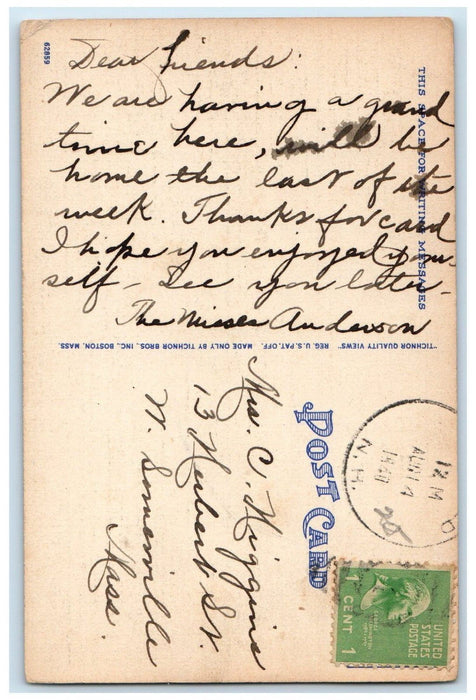 62859
Dear friends:
We are having a grand
time here, will be
home the last of the
week. Thanks for card
I hope you enjoyed your
self - See you later -
The Misses Anderson
THIS SPACE FOR WRITING MESSAGES
"TICHNOR QUALITY VIEWS" REG. U.S. PAT. OFF. MADE ONLY BY TICHNOR BROS., INC., BOSTON, MASS.
POST CARD
Mrs. C. Higgins
13 Hubert St.
W. Somerville
Mass
12 M
AUG 14
1940
N.H.
UNITED
STATES
POSTAGE
1 CENT 1